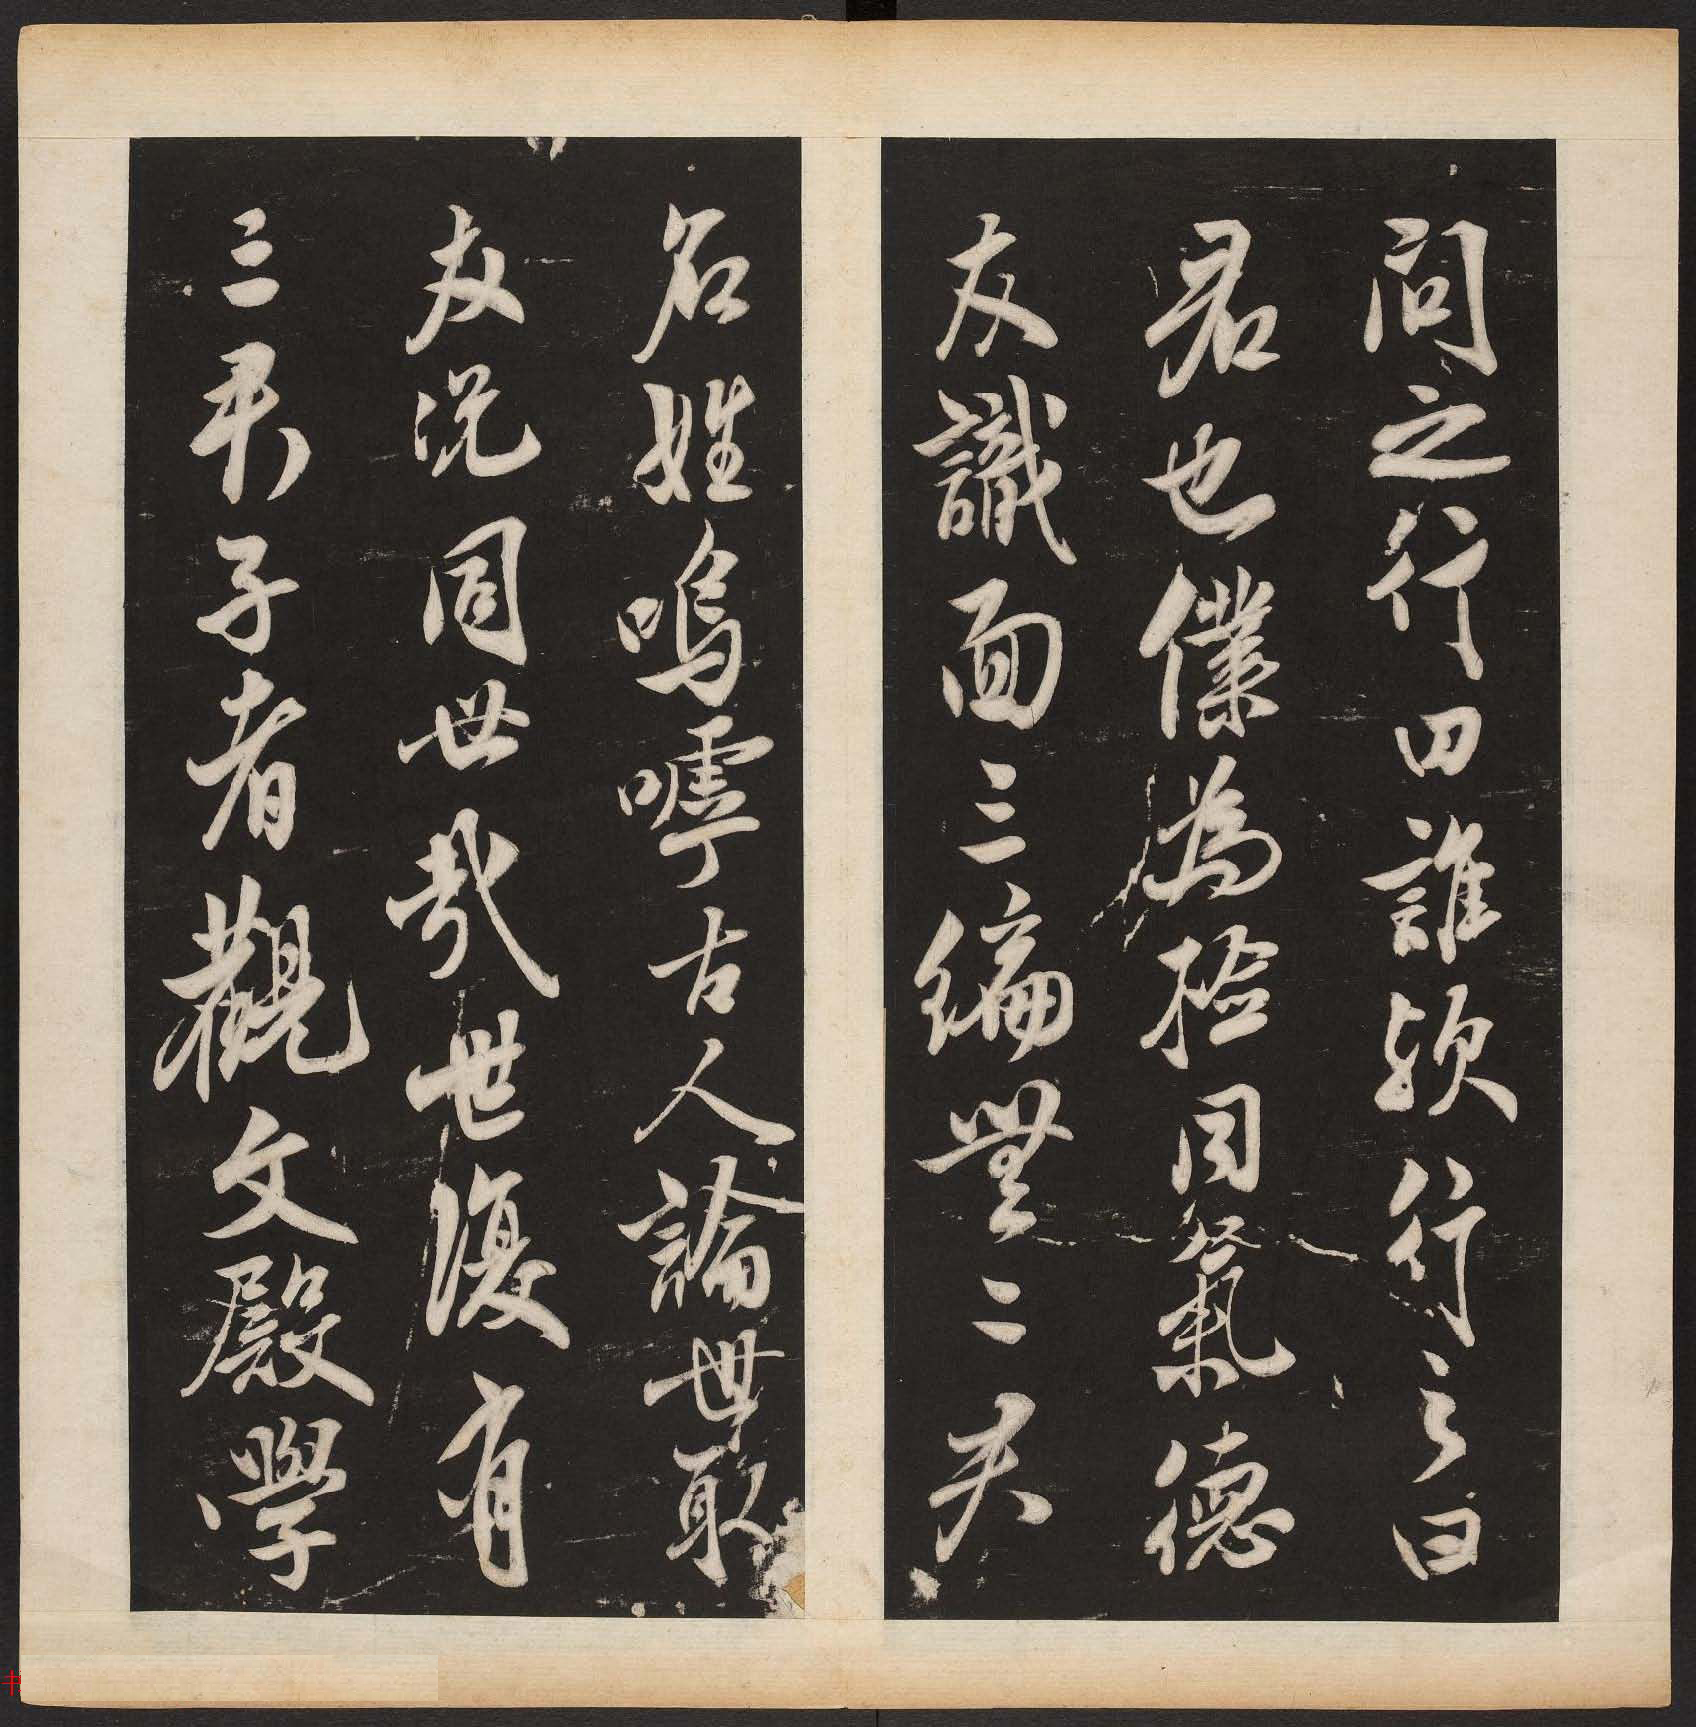 問之行曰誰歟行之曰
君也僕為撿同氣德
友識面三編無二夫
名姓嗚嘑古人論世取
友況同世哉世復有
三君子者觀文殿學